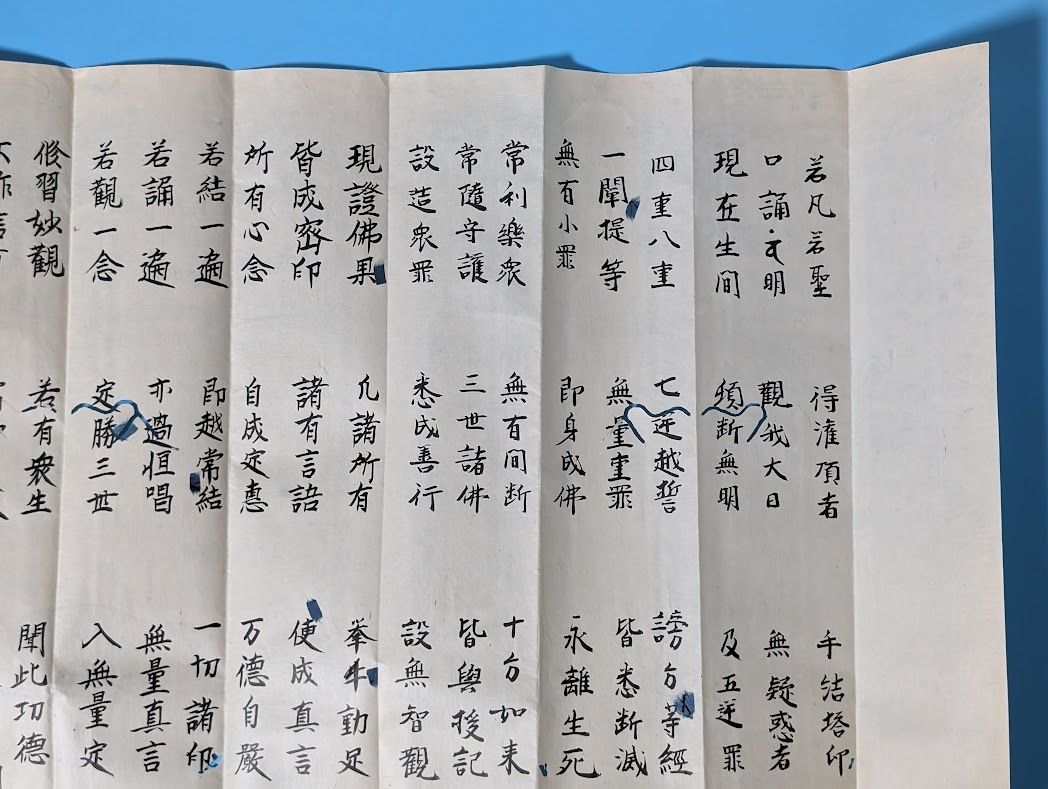 若凡若聖 得灌頂者 手結塔印
口誦 明 觀我大日 無疑惑者
現在生間 頓断無明 及五逆罪
四重八重 七逆越誓 謗方等經
一闡提等 無量重罪 皆悉断滅
無有小罪 即身成佛 永離生死
常利樂衆 無有間断 十方如来
常隨守護 三世諸佛 皆與授記
設造衆罪 悉成善行 設無智觀
現證佛果 凡諸所有 舉手動足
皆成密印 諸有言語 便成真言
所有心念 自成定惠 万德自嚴
若結一遍 即越常結 一切諸印
若誦一遍 亦過恒唱 無量真言
若觀一念 定勝三世 入無量定
修習妙觀 若有衆生 聞此功德